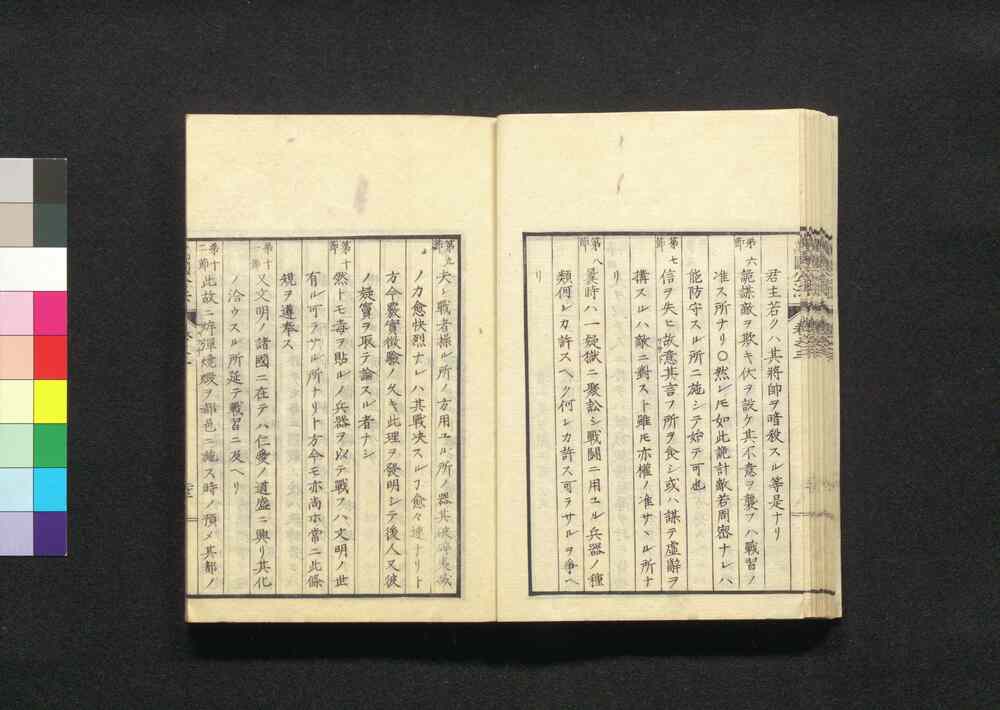 君主若クハ其將帥ヲ暗殺スル等是ナリ
第六節 詭謀敵ヲ欺キ伏ヲ設ケ其不意ヲ襲フハ戰習ノ
准ス所ナリ〇然レ𪜈如此詭計敵若周密ナレハ
能防守スル所ニ施シテ始テ可也
第七節 信ヲ失ヒ故意其言フ所ヲ食シ或ハ謀テ虛辭ヲ
搆スルハ敵ニ對スト雖𪜈亦權ノ准サヽル所ナ
リ
第八節 曩時ハ一疑獄ニ聚訟シ戰鬪ニ用ユル兵器ノ種
類何レカ許スヘク何レカ許ス可ラサルヲ爭ヘ
リ
第九節 夫レ戰者操ル所ノ方用ユル所ノ器其破碎
ノ力愈快烈ナレハ其戰决スルヿ愈々速ナリト
方今覈實徵驗ノ久キ此理ヲ發明シテ後人又彼
ノ疑竇ヲ取テ論スル者ナシ
第十節 然トモ毒ヲ貼ルノ兵器ヲ以テ戰フハ文明ノ世
有ル可ラサル所ナリト方今モ亦尚ホ常ニ此條
規ヲ遵奉ス
第十一節 又文明ノ諸國ニ在テハ仁愛ノ道盛ニ興リ其化
ノ洽ウスル所延テ戰習ニ及ヘリ
第十二節 此故ニ炸彈燒燬ヲ都邑ニ施ス時ノ預メ其都ノ